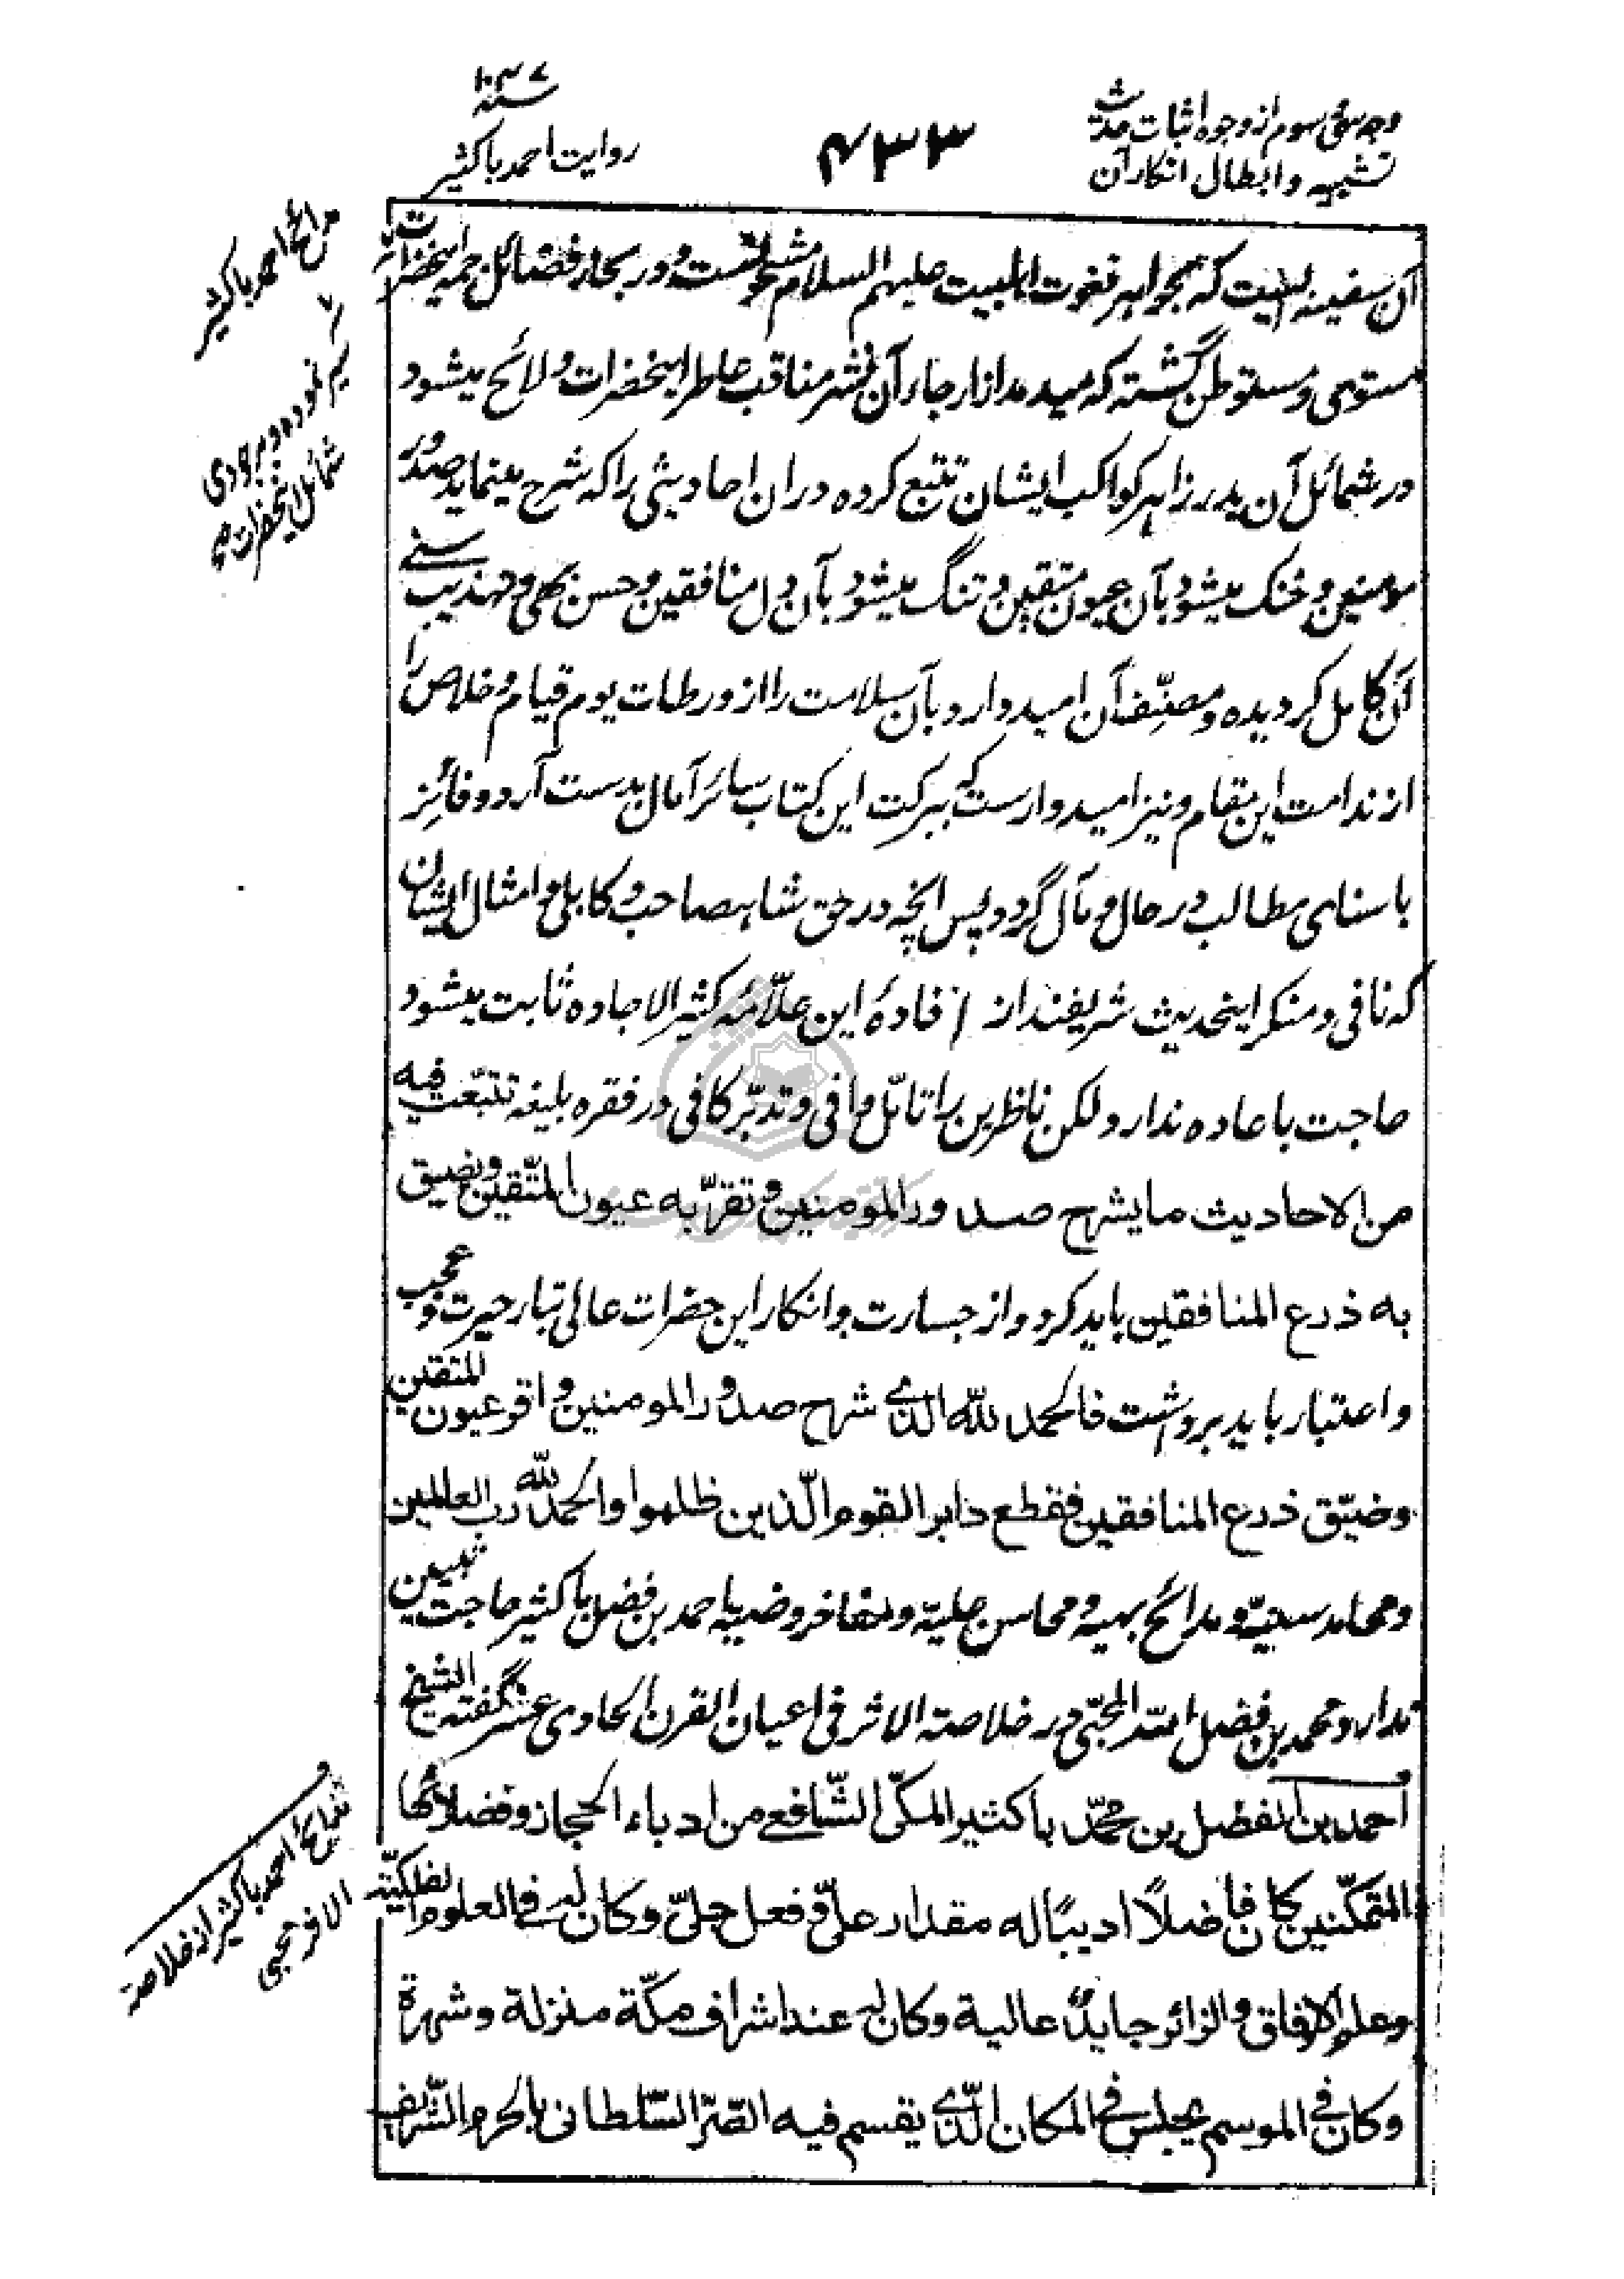 وجه سی و سوم از وجوه اثبات حدیث
تشبیه و ابطال انکار آن
۴۳۳
سنه ۱۰۴۷
روایت احمد باکثیر
آن سفینه ایست که بجواهر نعوت اهلبیت علیهم السلام مشحونست و در بحار فضائل جمه اینحضرات
مستوی و مستوطن گشته که میدمد از ارجاء آن نشر مناقب عاطر اینحضرات و لائح میشود
در شمائل آن بدر زاهر کواکب ایشان تتبع کرده در ان احادیثی را که شرح مینماید صدور
مومنین و خنک میشود بآن عیون متقین و تنگ میشود بآن دل منافقین و حسن بهی و تهذیب سنی
آن کامل گردیده و مصنّف آن امید دارد بآن سلامت را از ورطات یوم قیام و خلاص را
از ندامت این مقام و نیز امیدوارست که ببرکت این کتاب سائر آمال بدست آرد و فائز
باسنای مطالب در حال و مآل گردد پس آنچه در حق شاهصاحب و کابلی و امثال ایشان
که نافی و منکر اینحدیث شریفند از افادهٔ این علّامهٔ کثیر الاجاده ثابت میشود
حاجت باعاده ندارد لکن ناظرین را تامّل وافی و تدبّر کافی در فقره بلیغه تتبّعت فیه
من الاحادیث ما یشرح صدور المومنین و تقرّ به عیون المتّقین و یضیق
به ذرع المنافقین باید کرد و از جسارت و انکار این حضرات عالی تبار حیرت و عجب
و اعتبار باید برداشت فالحمد لله الذی شرح صدور المومنین و اقر عیون المتقین
وضیّق ذرع المنافقین فقطع دابر القوم الّذین ظلموا والحمد لله رب العالمین
و محامد سنیّه و مدائح بهیه و محاسن جلیّه و مفاخر وضیّه احمد بن فضل باکثیر حاجت تبیین
ندارد محمد بن فضل الله المحبّی در خلاصة الاثر فی اعیان القرن الحادی عشر گفته الشیخ
احمد بن الفضل بن محمّد باکثیر المکّی الشّافعی من ادباء الحجاز و فضلائها
المتمکّنین کان فاضلاً ادیبًا له مقدار علیّ و فعل جلیّ و کان له فی العلوم الفلکیّه
و علم الاوفاق و الزائرجا ید عالیة و کان له عند اشراف مکّة منزلة و شهرة
و کان فی الموسم یجلس فی المکان الّذی یقسم فیه الصّرّ السّلطانی بالحرم الشّریف
احمد باکثیر
شمائل اینحضرات
مدائح احمد باکثیر از خلاصة
الاثر محبی